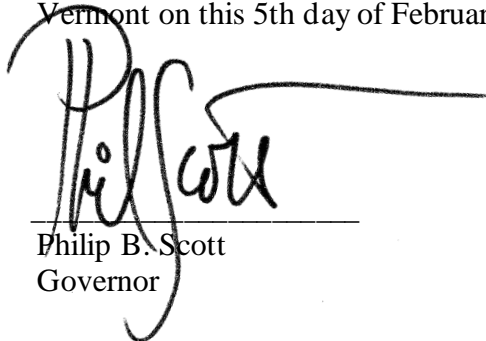 Vermont on this 5th day of Februar
Phil Scott
Philip B. Scott
Governor